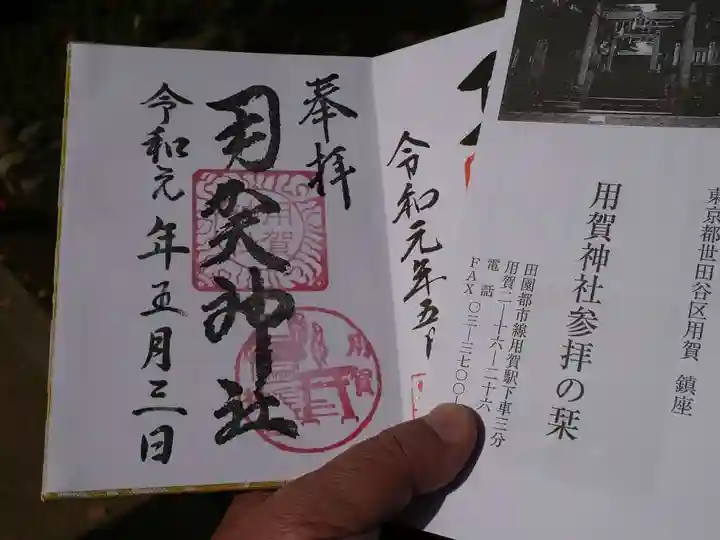 奉拝
用賀神社
令和元年五月三日
用賀
用賀
令和元年五月
東京都世田谷区用賀 鎮座
用賀神社参拝の栞
田園都市線用賀駅下車三分
用賀二ー十六ー二十六
電話
FAX 〇三ー三七〇〇ー